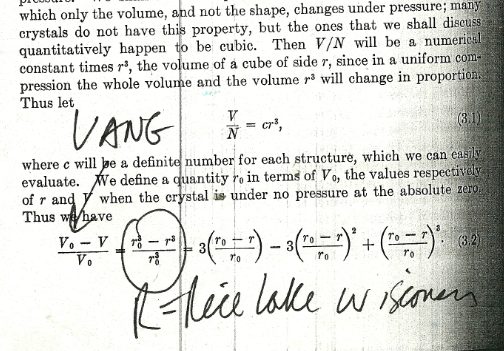 which only the volume, and not the shape, changes under pressure; many
crystals do not have this property, but the ones that we shall discuss
quantitatively happen to be cubic. Then V/N will be a numerical
constant times r³, the volume of a cube of side r, since in a uniform com-
pression the whole volume and the volume r³ will change in proportion.
Thus let
VANG
V/N = cr³, (3.1)
where c will be a definite number for each structure, which we can easily
evaluate. We define a quantity r₀ in terms of V₀, the values respectively
of r and V when the crystal is under no pressure at the absolute zero.
Thus we have
(V₀ − V)/V₀ = (r₀³ − r³)/r₀³ = 3((r₀ − r)/r₀) − 3((r₀ − r)/r₀)² + ((r₀ − r)/r₀)³. (3.2)
R=Rice lake wisconsn